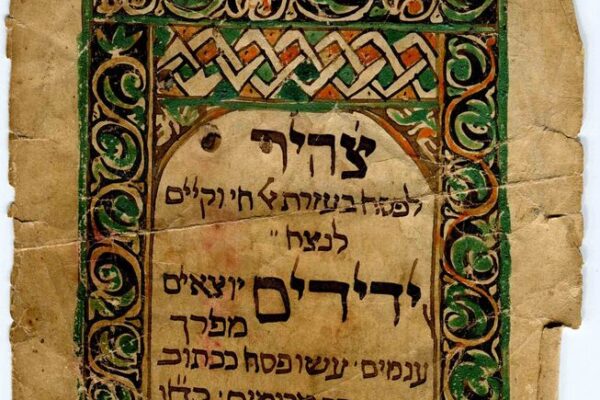 צהיר
לפסח בעזרת ﭏ חי וקיים
לנצח "
ידידים יוצאים
מפרך
ענמים · עשו פסח ככתוב